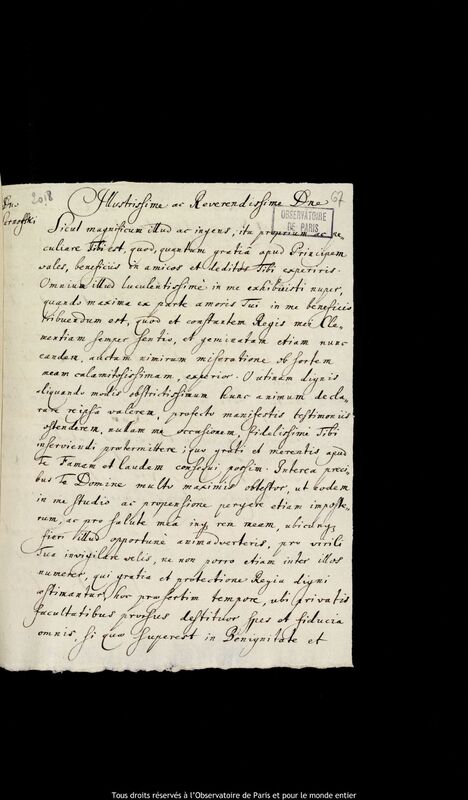 2018
67
Illustrissime ac Reverendissime Dne
OBSERVATOIRE
DE PARIS
Sicut magnificum illud ac ingens, ita proprium ac pe,
culiare Tibi est, quod, quantum gratiâ apud Principem
vales, beneficiis in amicos et deditos Tibi experiris.
Omnium illud luculentissimè in me exhibuisti nuper,
quando maxima ex parte amoris Tui in me beneficio
tribuendum est, quod et constantem Regis mei Cle,
mentiam semper sentio, et geminatam etiam nunc
eandem, auctam nimirum miseratione ob sortem
meam calamitosissimam, experior. O utinam dignis
aliquando modis obstrictissimum hunc animum decla,
rare reipsâ valerem, profecto manifestis testimoniis
ostenderem, nullam me occasionem fidelissimè Tibi
inserviendi praetermittere; quo grati et merentis apud
Te Famam et laudem consequi possim. Interea preci,
bus Te Domine multo maximis obtestor, ut eodem
in me studio ac propensione pergere etiam imposte,
rum, ac pro salute mea inq rem meam, ubicunqz
fieri illud opportunè animadverteris, pro virili
Tua invigilare velis, ne non porro etiam inter illos
numerer, qui gratia et protectione Regia digni
aestimantur, hoc praesertim tempore, ubi privatis
facultatibus prorsus destituor spes et fiducia
omnis, si quae superest in Benignitate et
Tous droits réservés à l'Observatoire de Paris et pour le monde entier